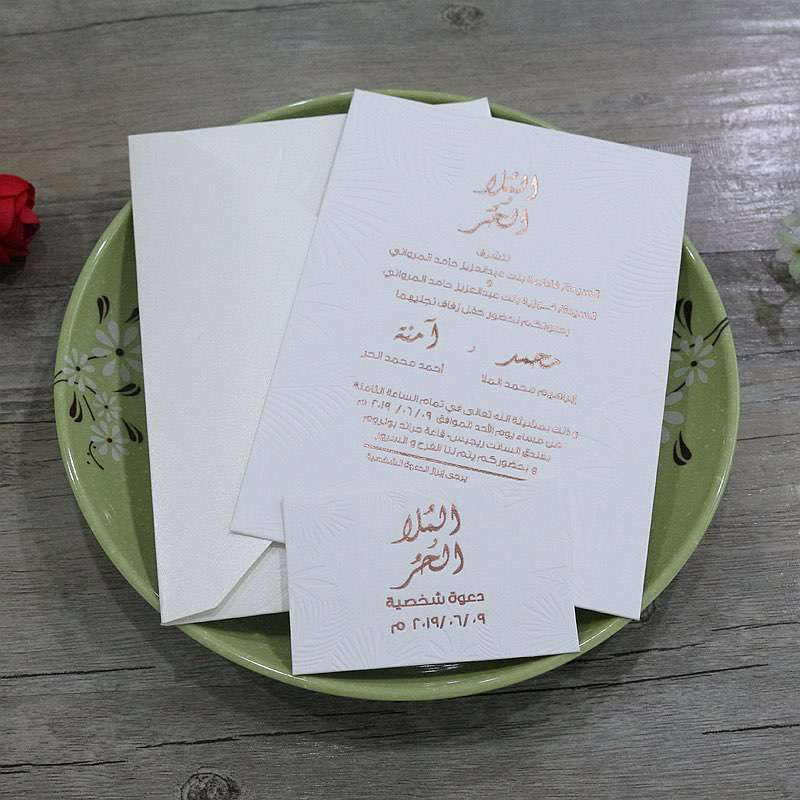 المُلا
الحُر
تتشرف
السيدة/ بنت عبدالعزيز حامد المرواني
و
السيدة/ فوزية بنت عبدالعزيز حامد المرواني
بدعوتكم لحضور حفل زفاف نجليهما
محمد
إبراهيم محمد الملا
و
آمنة
أحمد محمد الحر
و ذلك بمشيئة الله تعالى في تمام الساعة الثامنة
من مساء يوم الأحد الموافق ٢٠١٩/٠٦/٠٩ م
بفندق السانت ريجيس- قاعة جراند بولروم
و بحضوركم يتم لنا الفرح و السرور
يرجى إبراز الدعوة الشخصية
المُلا
الحُر
دعوة شخصية
٢٠١٩/٠٦/٠٩ م